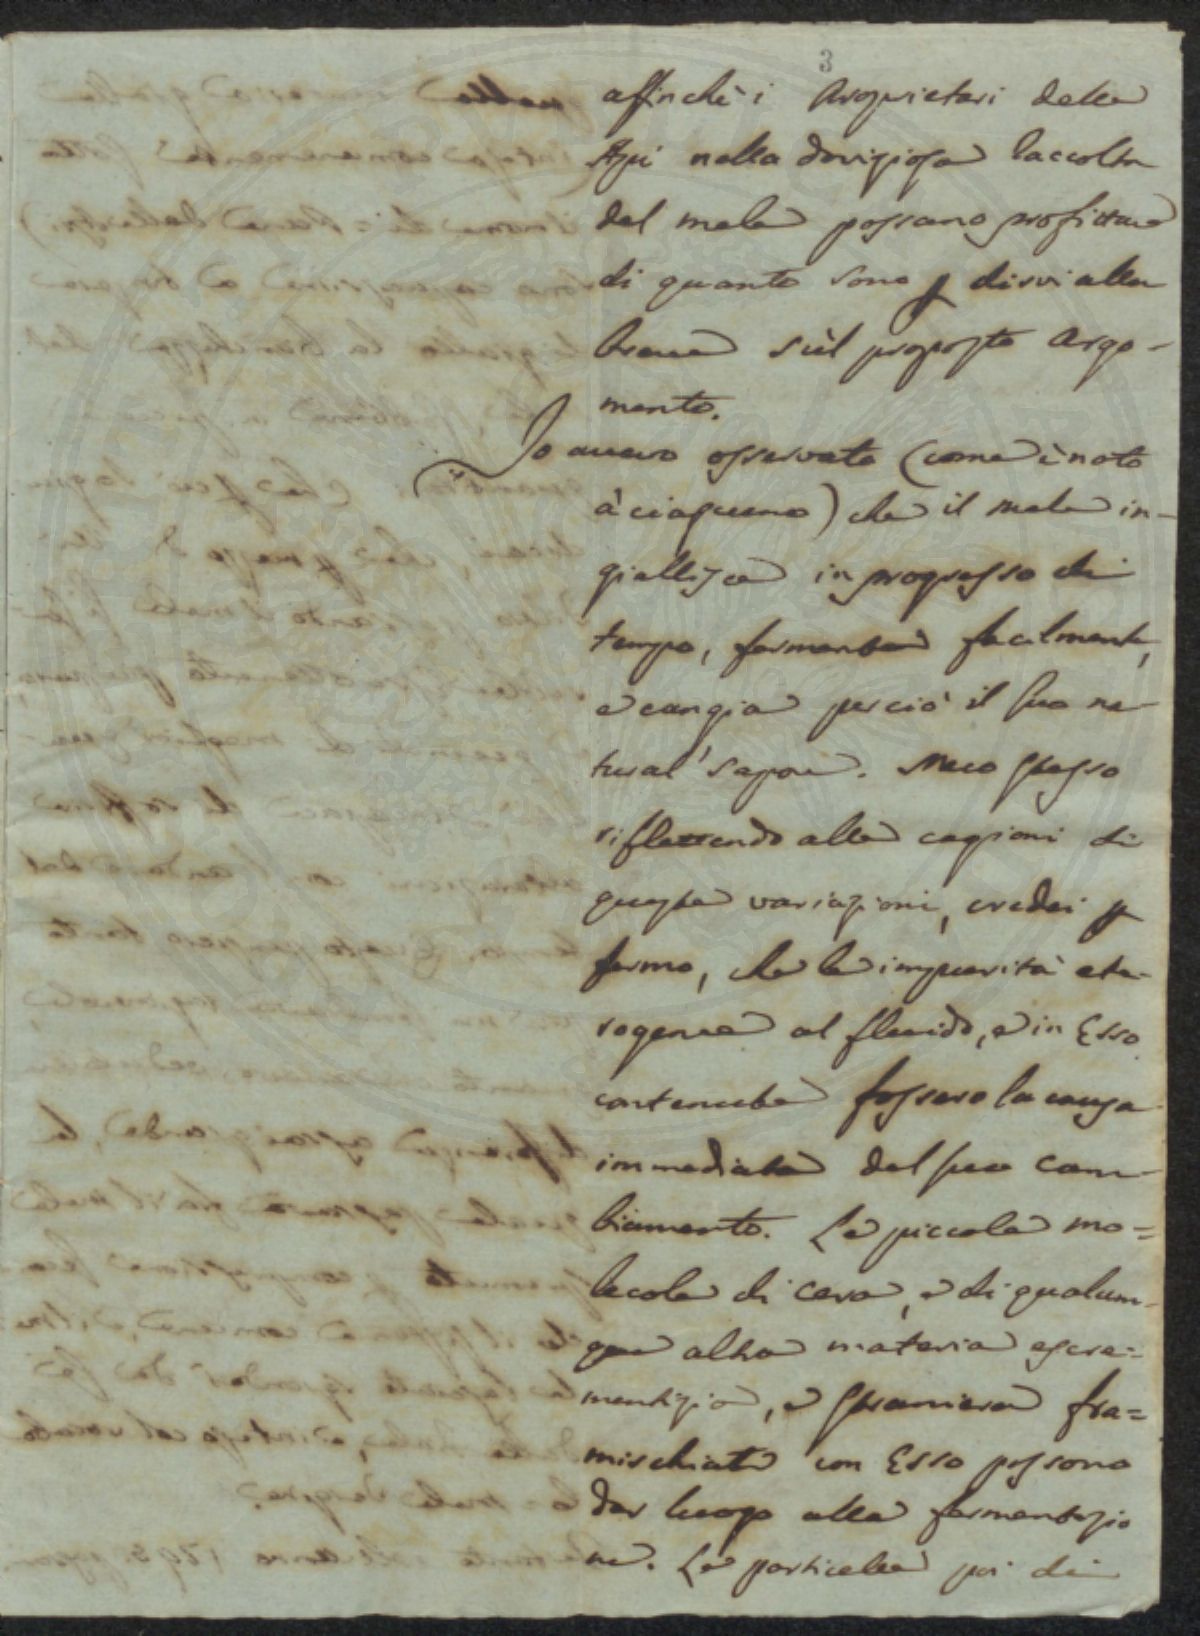 3
affinchè i Proprietari delle
Api nella doviziosa raccolta
del mele possano profittare
di quanto sono p disvi alla
breve sùl proposto Argo-
mento.
Io avevo osservato (come è noto
à ciascuno) che il mele in-
giallisce in progresso di
tempo, fermenta facilmente,
e cangia perciò il suo na-
tural' sapore. Meco spesso
riflettendo alle cagioni di
queste variazioni, credei p
fermo, che le impurità ete-
rogenee al fluido, e in Esso
contenute fossero la causa
immediata del suo cam-
biamento. Le piccole mo=
lecole di cera, e di qualun-
que altra materia escre-
mentizia, e straniera fra=
mischiate con Esso possono
dar luogo alla fermentazio
ne. Le particelle poi di